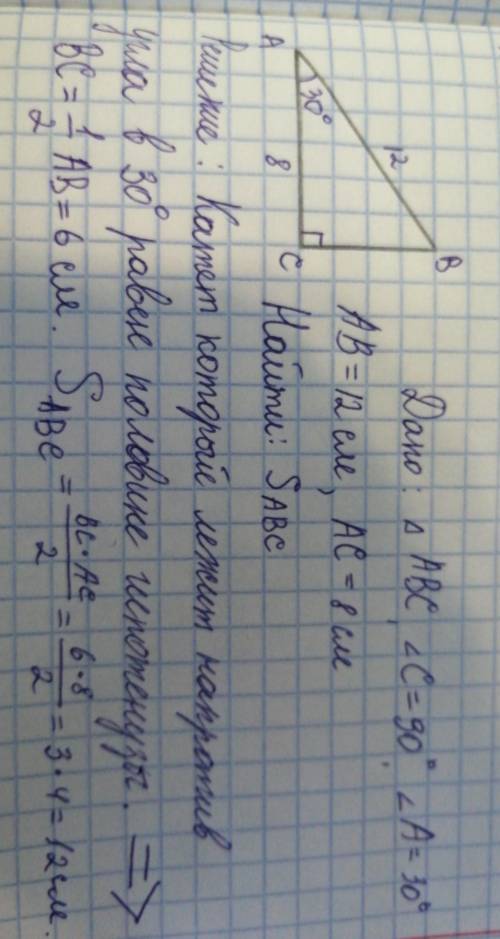 Дано: △ ABC, ∠C = 90°, ∠A = 30°
AB = 12 см, AC = 8 см
Найти: S ABC
A
30°
12
8
C
B
Решение: Катет который лежит напротив
угла в 30° равен половине гипотенузы. =>
BC = 1/2 AB = 6 см. S ABC = BC·AC/2 = 6·8/2 = 3·4 = 12 см.